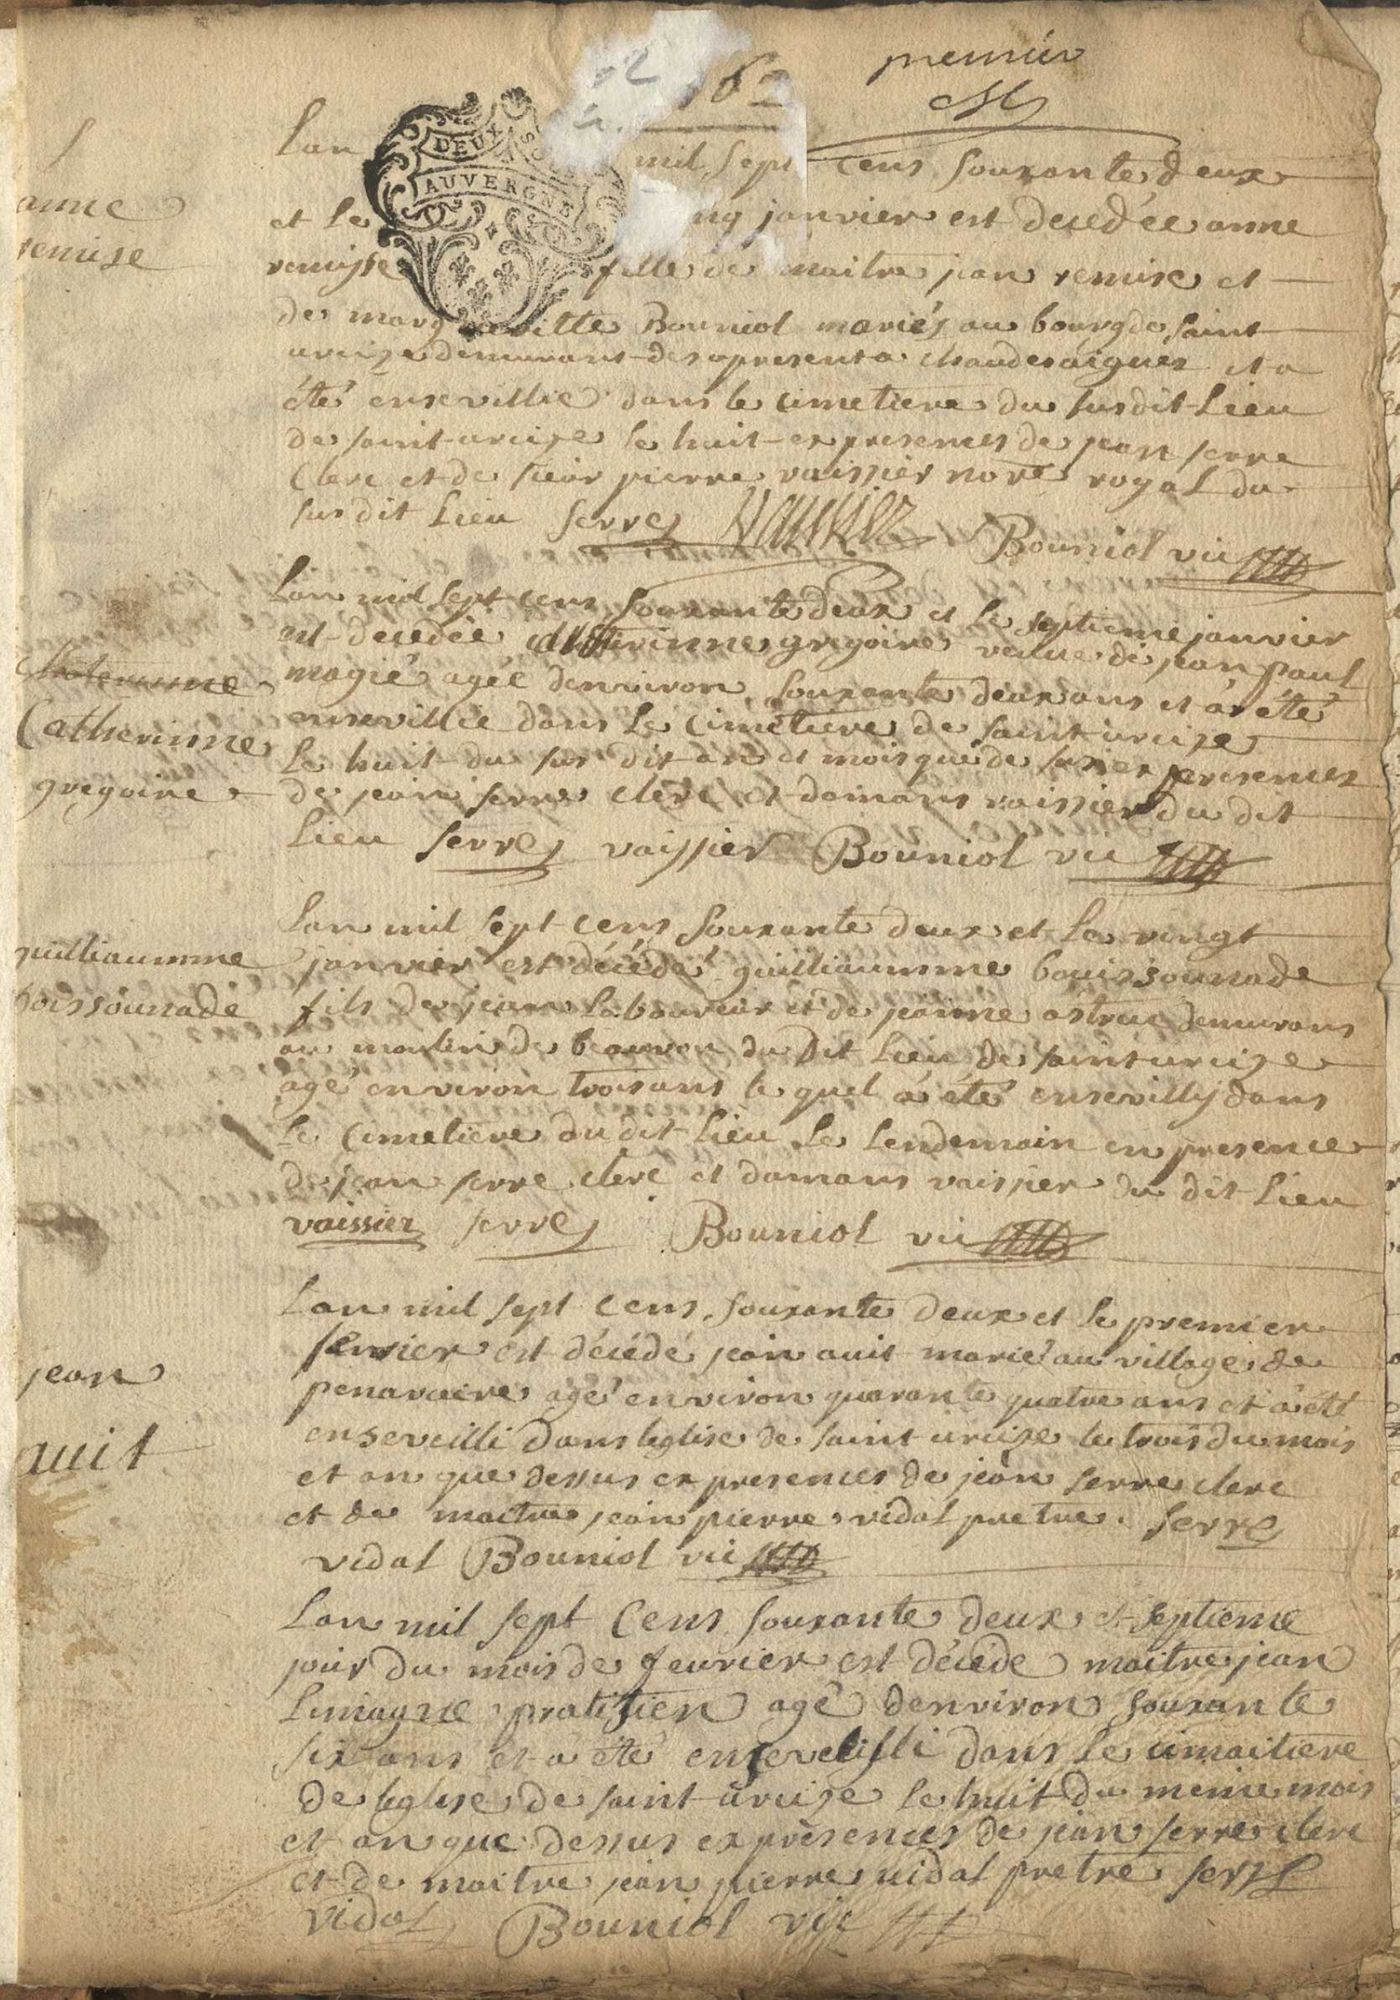 1762
premier
DEUX SOLS
AUVERGNE
Lan mil sept cens soixante deux
et le janvier est decedée anne
remise fille de maitre jean remise et
de marg Bouniol mariés au bourg de saint
urcize demurant des apresent a chaudesaigues et a
été ensevillie dans le cimetiere du susdit lieu
de saint urcize le huit ex presences de jean serre
clerc et de sieur pierre vaissier nore royal du
susdit lieu serre vaissier Bouniol vic
anne
remise
Lan mil sept cens soixante deux et le septieme janvier
est decedée gregoire veuve de jean paul
magié agée denviron soixante deux ans et a été
ensevillie dans le cimetiere de saint urcize
le huit du sus dit an et mois que dessus ex presences
de jean serre clerc et damans vaissier du dit
lieu serre vaissier Bouniol vic
Catherinne
gregoire
Lan mil sept cens soixante deux et le vingt
janvier est décédé guilliaumme bouissounade
fils de jean laboureur et de jeanne astruc demurans
au moulin de beauron du dit lieu de saint urcize
agé environ trois ans le quel a été ensevilly dans
le cimetiere du dit lieu le lendemain en presence
de jean serre clerc et damans vaissier du dit lieu
vaissier serre Bouniol vic
guilliaumme
boissounade
Lan mil sept cens soixante deux et le premier
fevrier est décédé jean auit marié au village de
penaveire agé environ quarante quatre ans et a été
enseveilli dans leglise de saint urcize le trois du mois
et an que dessus ex presences de jean serre clerc
et de maitre jean pierre vidal pretre. serre
vidal Bouniol vic
jean
auit
Lan mil sept cens soixante deux et septieme
jour du mois de fevrier est décédé maitre jean
Limagne pratitien agé denviron soixante
six ans et a été ensevelilli dans le cimaitiere
de leglise de saint urcize le huit du meme mois
et an que dessus ex presences de jean serre clerc
et de maitre jean pierre vidal pretre serre
vidal Bouniol vic